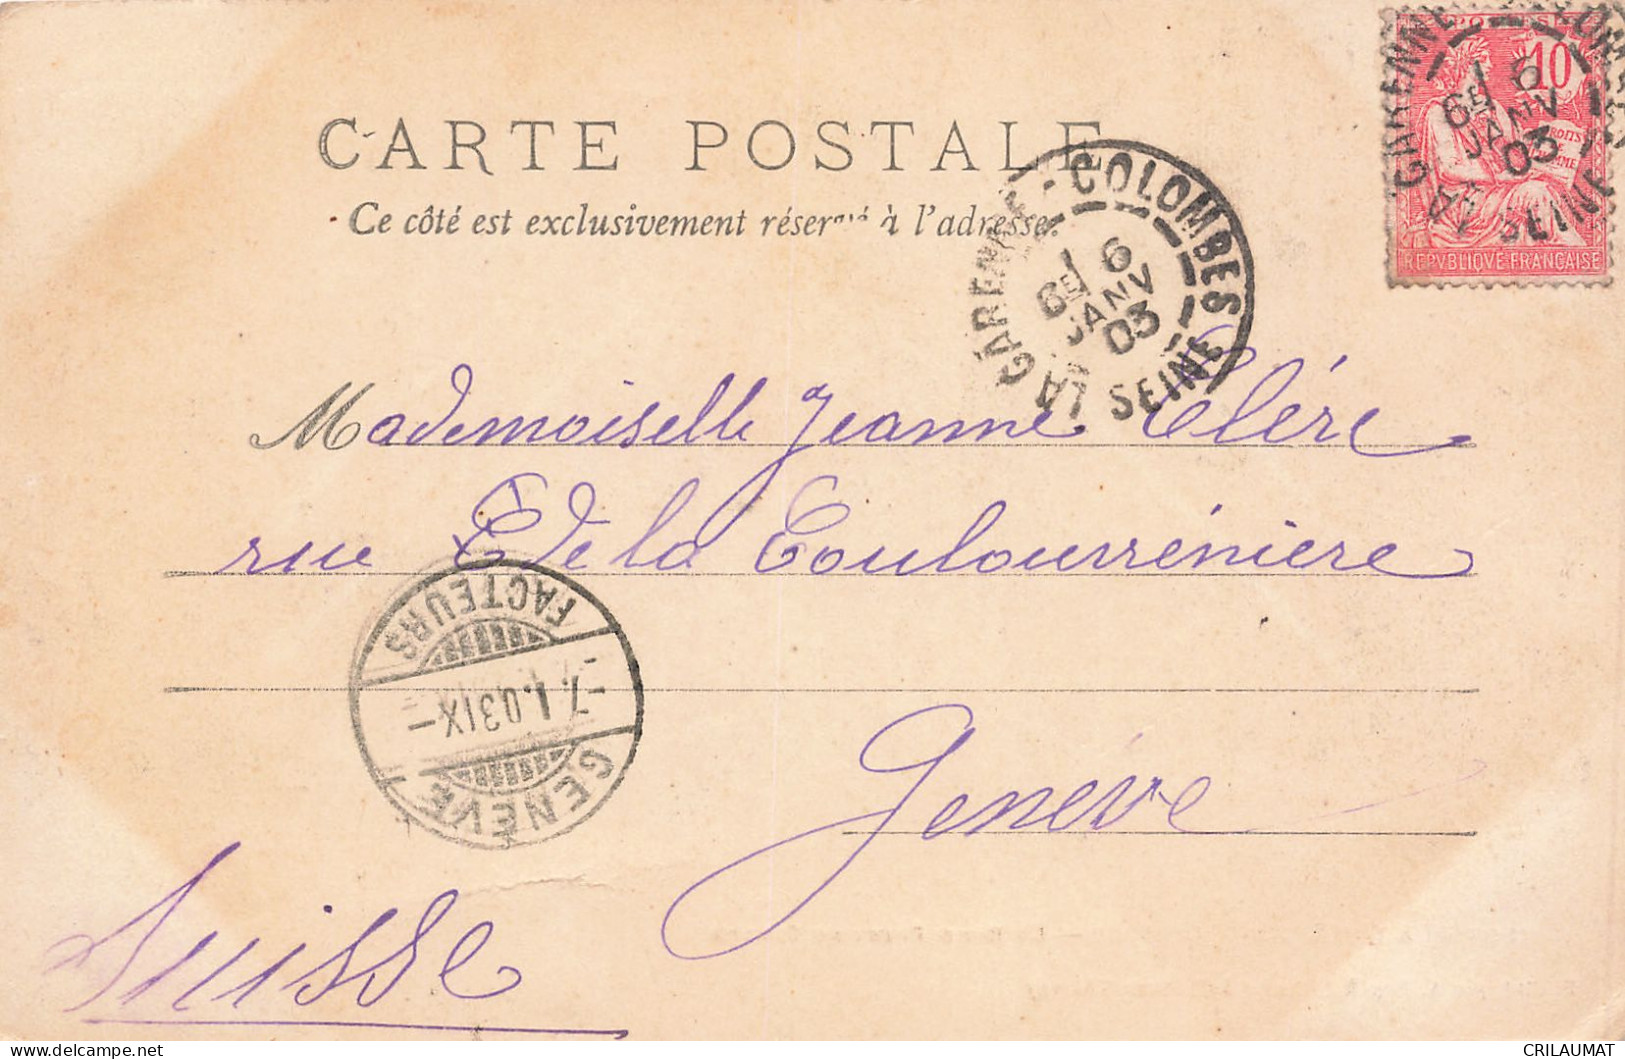 CARTE POSTALE
Ce côté est exclusivement réservé à l'adresse.
POSTES
10
DROITS
DE
L'HOMME
REPVBLIQVE FRANÇAISE
LA GARENNE-COLOMBES
6E 16
JANV
03
SEINE
LA GARENNE-COLOMBES
6E 16
JANV
03
SEINE
Mademoiselle Jeanne Cléré
rue de la Coulouvrenière
FACTEURS
-7.1.03 IX-
GENÈVE
Genève
Suisse
CRILAUMAT